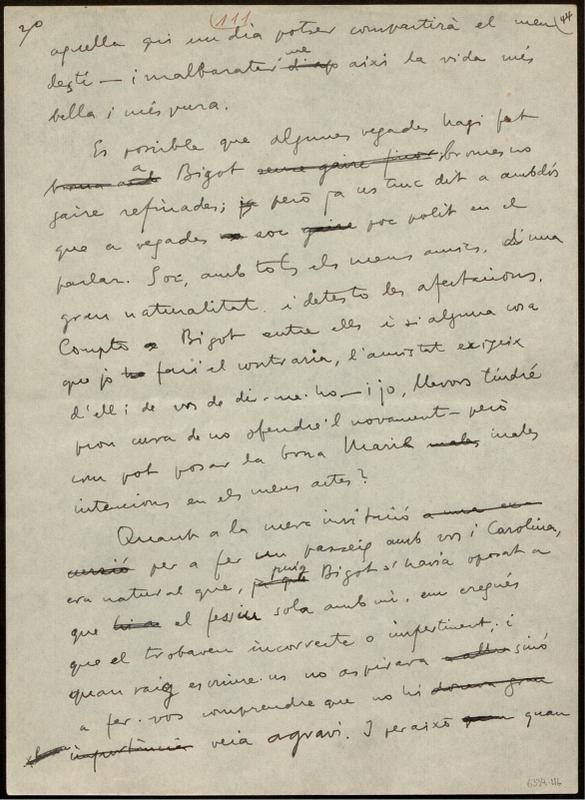 20 (111 44
aquella qui un dia potser compartirà el meu
destí — i malbaratar-me així la vida més
bella i més pura.
Es possible que algunes vegades hagi fet
a Bigot bromes no
gaire refinades; però ja us tinc dit a ambdós
que a vegades soc poc polit en el
parlar. Soc, amb tots els meus amics, d'una
gran naturalitat i detesto les afectacions.
Compto a Bigot entre ells i si alguna cosa
que jo faci el contraria, l'amistat exigeix
d'ell i de vos de dir-me-ho — i jo, llavors tindré
prou cura de no ofendre'l novament — però
com pot posar la bona Marie males
intencions en els meus actes?
Quant a la meva invitació
per a fer un passeig amb vos i Carolina,
era natural que, puig Bigot s'havia oposat a
que el fessiu sola amb mi, em cregués
que el trobaven incorrecte o impertinent; i
quan vaig escriure-us no aspirava sinó
a fer-vos comprendre que no hi
veia agravi. I per això quan
6394-116